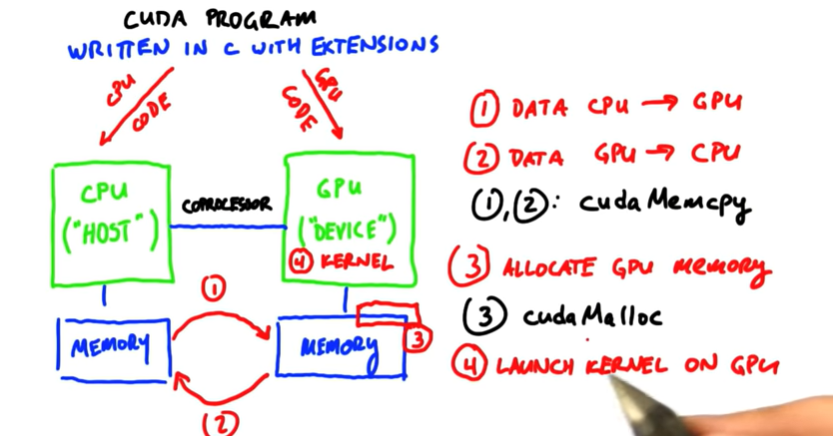 CUDA PROGRAM
WRITTEN IN C WITH EXTENSIONS
CPU
CODE
GPU
CODE
CPU
("HOST")
COPROCESSOR
GPU
("DEVICE")
④ KERNEL
①
MEMORY
MEMORY
③
(2)
① DATA CPU → GPU
② DATA GPU → CPU
①,②: cudaMemcpy
③ ALLOCATE GPU MEMORY
③ cudaMalloc
④ LAUNCH KERNEL ON GPU